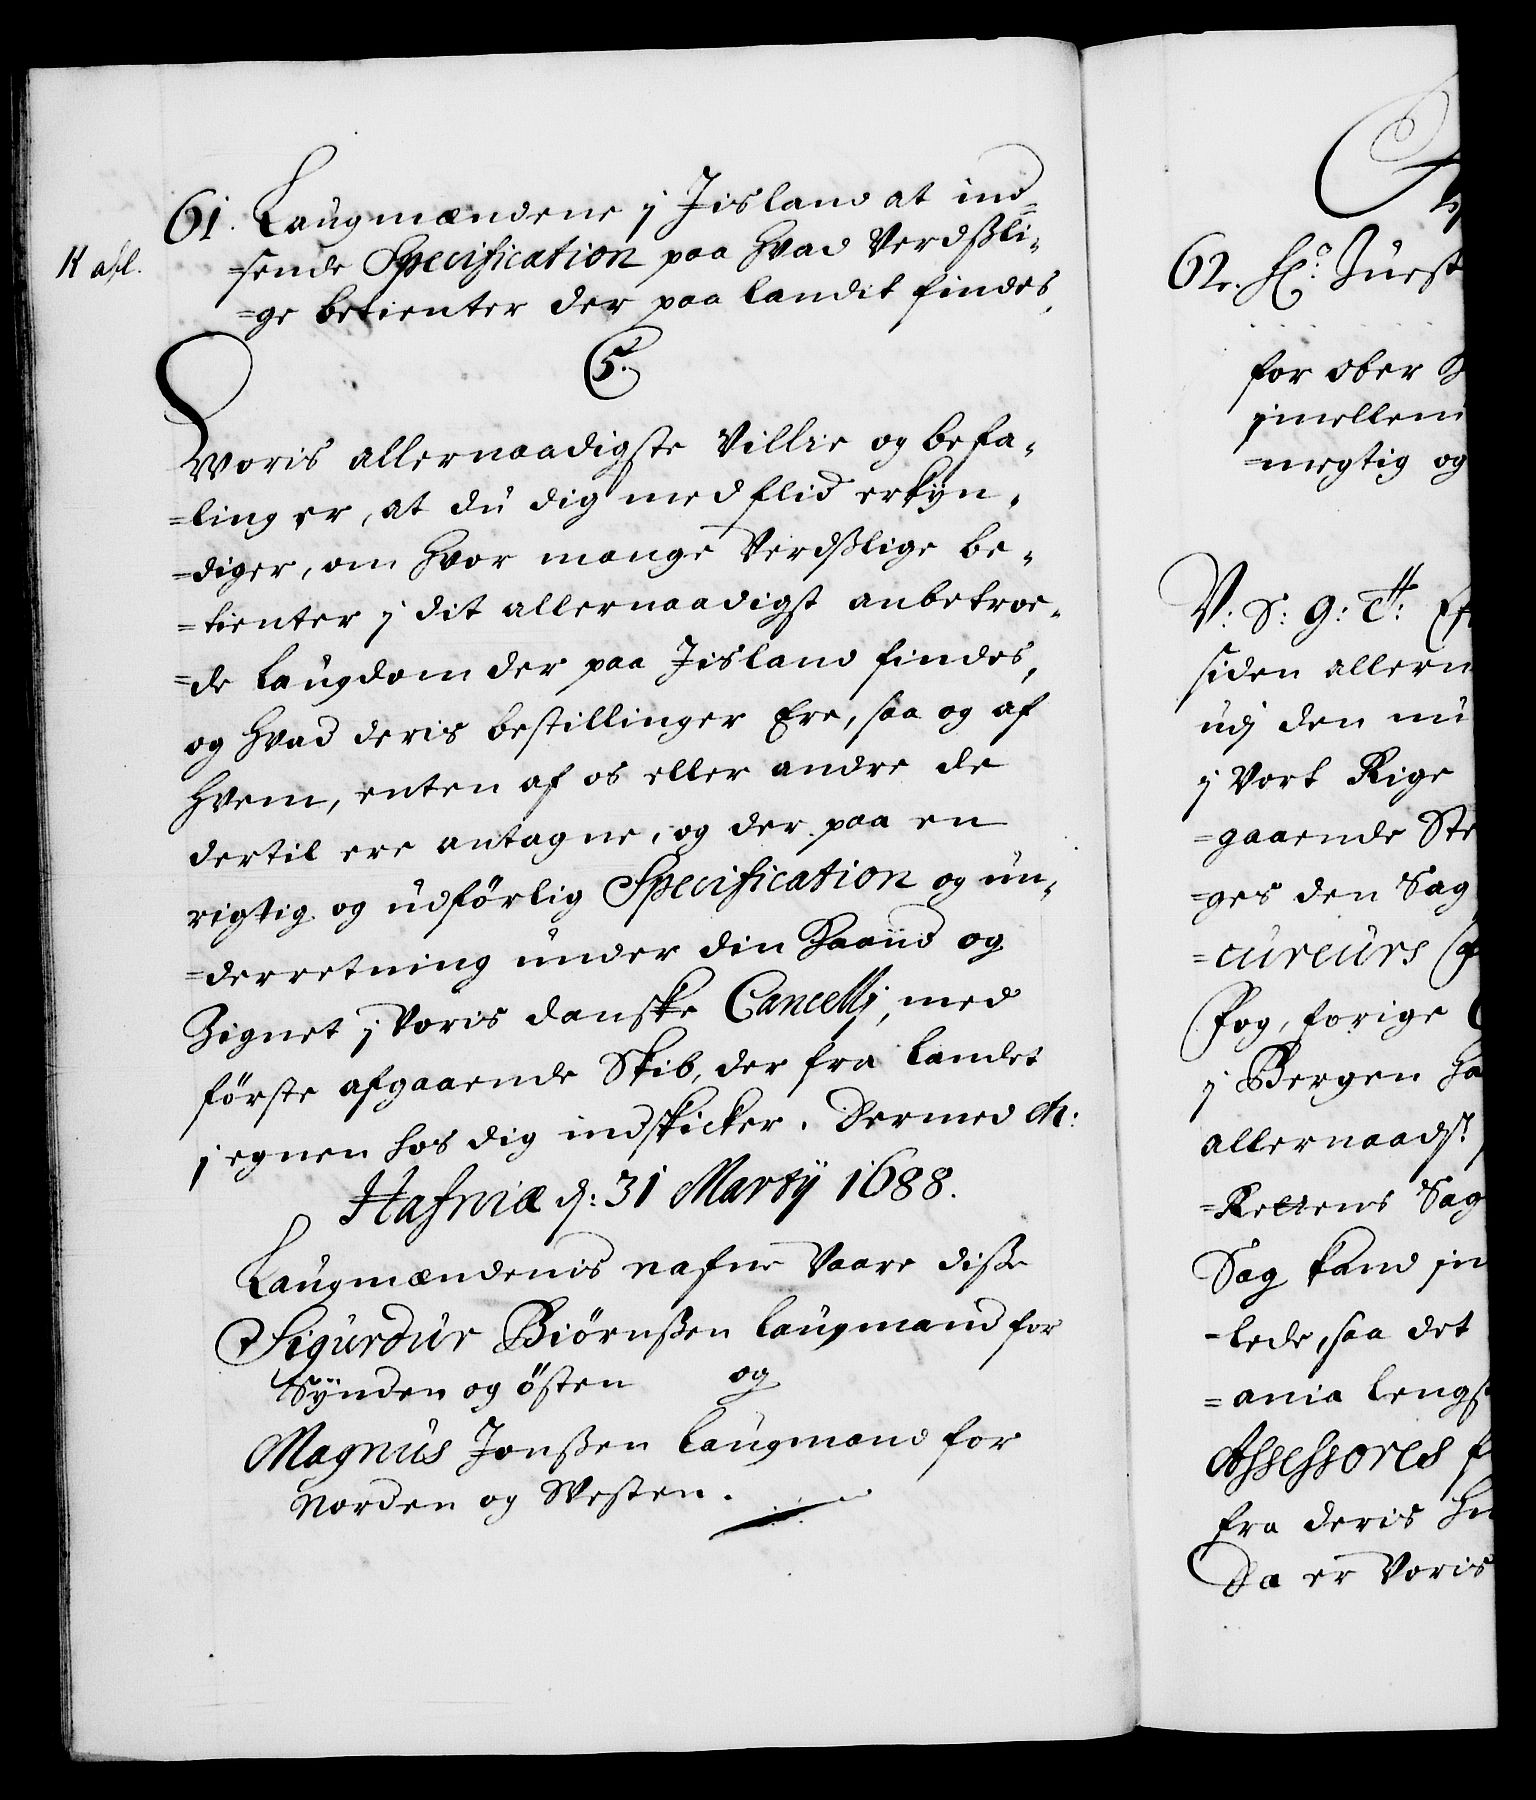 61. Laugmændene j Jisland at ind=
=sende Specification paa hvad Verdßli=
=ge betienter der paa landit findes,
C5.
Woris allernaadigste Villie og befa=
=ling er, at du dig med flid erkyn=
=diger, om hvor mange Verdßlige be=
=tienter j dit allernaadigst anbetroe=
=de Laugdom der paa Jisland findes,
og hvad deris bestillinger Ere, saa og af
hvem, enten af os eller andre de
dertil ere antagne, og der paa en
rigtig og udförlig Specification og un=
=derretning under din Haand og
Zignet j Voris danske Cancellj, med
förste afgaaende Skib, der fra Landet
j egnen hos dig indskicker. Dermed
Hafniæ d: 31 Martij 1688.
Laugmændenis nafne Vaare disse
Sigurdur Biörnßen laugmand for
Synden og östen og
Magnus Jonßen Laugmand for
Norden og Westen.
62. Just
for ober
jmellem
=megtig og
V: S: G: T:
siden allern
udj den nu
j Vort Rige
=gaaende Ste
=ges den Sag
=cureurs
Fog, forige
j Bergen ha
allernaadst
=Rettens Sag
Sag kand in
=lede, saa det
=ania lengst
Assessores f
fra deris
Da er Voris